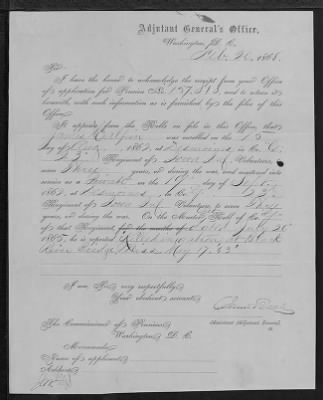 Adjutant General's Office,
Washington, D. C.
Feb. 26, 1868.
Sir:
I have the honor to acknowledge the receipt from your Office
of application for Pension No. 157.313, and to return it
herewith, with such information as is furnished by the files of this
Office.
It appears from the Rolls on file in this Office, that
was enrolled on the
day of 1862, at in Co. G,
23" Regiment of Iowa Inf. Volunteers,
to serve Three years, or during the war, and mustered into
service as a Private on the 19" day of Sept.
1862, at in Co. G, 23"
Regiment of Iowa Inf. Volunteers, to serve Three
years, or during the war. On the Muster Roll of Co. G
of that Regiment, for the months of dated July 26"
1865, he is reported Killed in action at Black
River Bridge Miss May 17. 63"
I am, Sir, very respectfully,
Your obedient servant,
Assistant Adjutant General.
The Commissioner of Pensions,
Washington, D. C.
Memoranda:
Name of applicant,
Address,